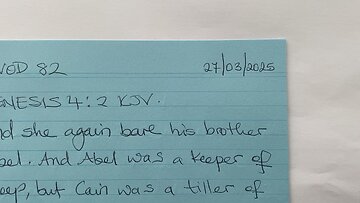 VOD 82 27/03/2025
ENESIS 4:2 KJV.
nd she again bare his brother
bel. And Abel was a keeper of
eep, but Cain was a tiller of